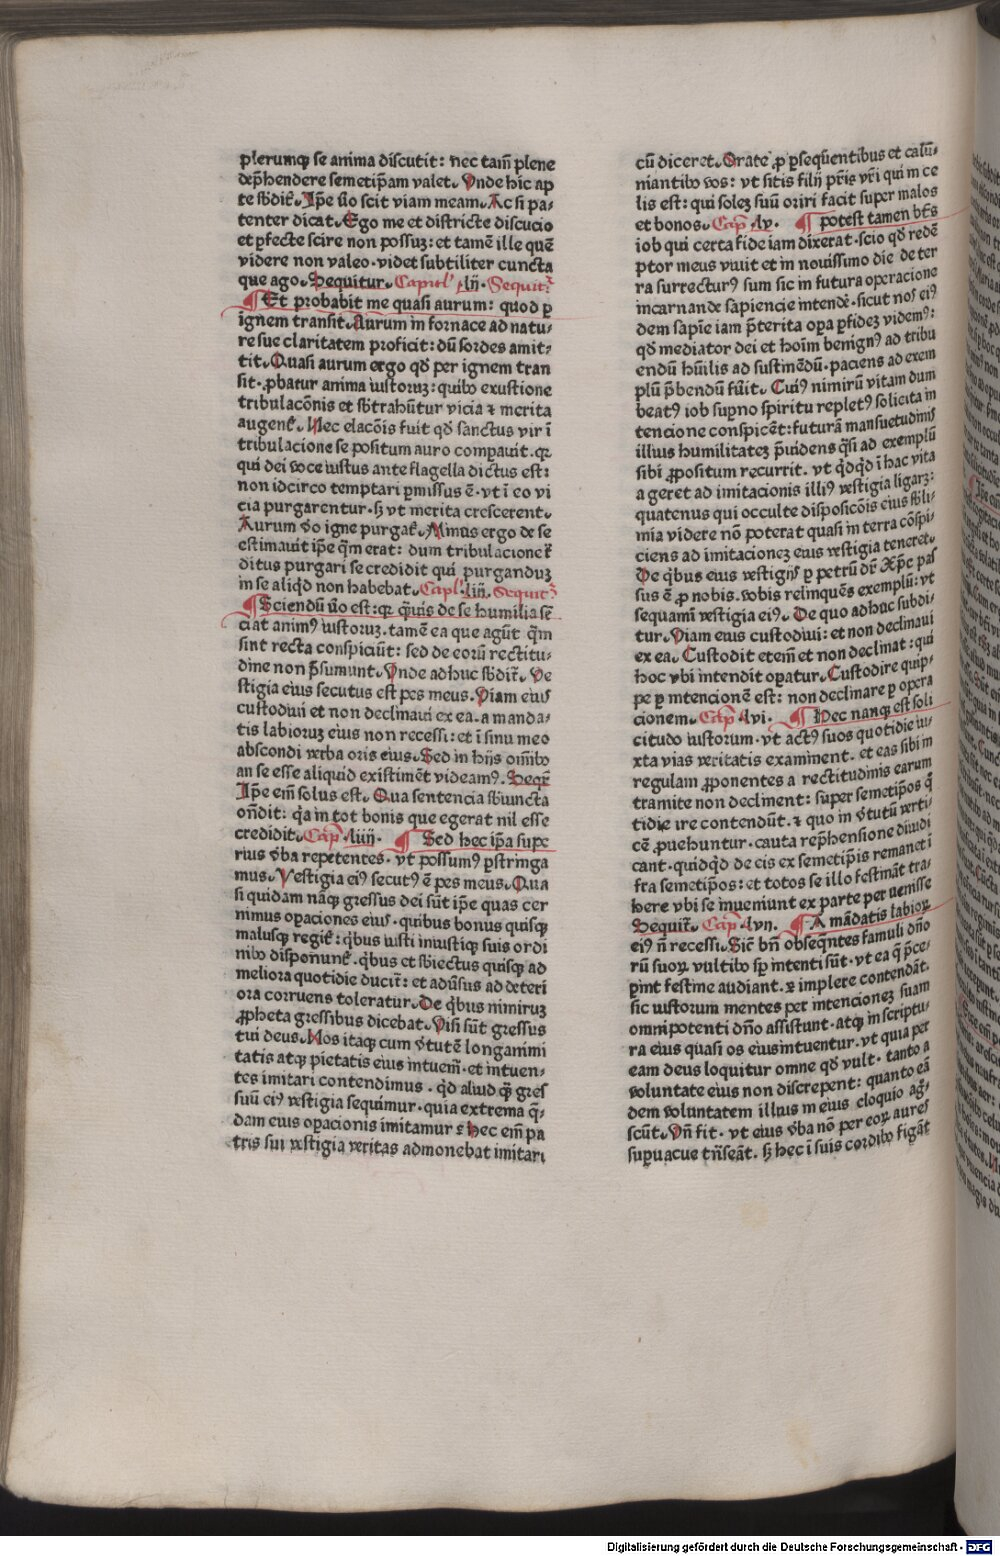 plerumq̃ se anima discutit: nec tam̃ plene
dep̃hendere semetip̃am valet. Vnde hic ap
te sb̃dit᷑. Ip̃e ṽo scit viam meam. Ac si pa-
tenter dicat. Ego me et districte discucio
et p̲fecte scire non possuꝫ: et tamē ille quē
videre non valeo. videt subtiliter cuncta
que ago. Sequitur. Capitl̃ .lij. Sequit᷑
¶ Et probabit me quasi aurum: quod p̲
ignem transit. Aurum in fornace ad natu-
re sue claritatem proficit: dū sordes amit-
tit. Quasi aurum ergo qd̃ per ignem tran
sit. ꝓbatur anima iustoruꝫ: quibꝰ exustione
tribulacōnis et sb̃trahūtur vicia ⁊ merita
augent᷑. Nec elacōis fuit qd̃ sanctus vir ī
tribulacione se positum auro compauit. qꝛ
qui dei voce iustus ante flagella dictus est:
non idcirco temptari p̲missus ē. vt ī eo vi
cia purgarentur. sꝫ vt merita crescerent.
Aurum ṽo igne purgat᷑. Minus ergo de se
estimauit ip̃e q̃m erat: dum tribulacione t᷑
ditus purgari se credidit qui purganduꝫ
in se aliqd̃ non habebat. Capl̃ .liij. Sequit᷑
¶ Sciendū ṽo est: qꝛ q̃uis de se humilia sē
ciat animꝰ iustoruꝫ. tamē ea que agūt q̃m
sint recta conspiciūt: sed de eorū rectitu-
dine non p̃sumunt. Vnde adhuc sb̃dit᷑. Ve
stigia eius secutus est pes meus. Viam eius
custodiui et non declinaui ex ea. a manda-
tis labioruꝫ eius non recessi: et ī sinu meo
abscondi verba oris eius. Sed in hijs om̄ibꝰ
an se esse aliquid existimēt videamꝰ. Seqr̃
Ip̃e em̄ solus est. Qua sentencia sb̃iuncta
on̄dit: q̃a in tot bonis que egerat nil esse
credidit. Cap̃ .liiij. ¶ Sed hec ip̃a supe
rius ṽba repetentes. vt possumꝰ p̲stringa
mus. Vestigia eiꝰ secutꝰ ē pes meus. Qua
si quidam nāq̃ gressus dei sūt ip̃e quas cer
nimus op̲aciones eius. quibus bonus quisq̃
malusq̃ regit᷑: qb̃us iusti iniustiq̃ suis ordi
nibꝰ disponunt᷑. qb̃us et sb̃iectus quisq̃ ad
meliora quotidie ducit᷑: et adũsus ad deteri
ora corruens toleratur. De qb̃us nimiruꝫ
ꝓpheta gressibus dicebat. Visi sūt gressus
tui deus. Nos itaq̃ cum ṽtutē longanimi
tatis atq̃ pietatis eius intuem᷑. et intuen-
tes imitari contendimus. qd̃ aliud q̃ gres
suū eiꝰ vestigia sequimur. quia extrema q̃-
dam eius op̲acionis imitamur? Hec em̄ pa
tris sui vestigia veritas admonebat imitari
cū diceret. Orate ꝓ p̲seqūentibus et calū-
niantibꝰ vos: vt sitis filij pr̃is vr̃i qui in ce
lis est: qui soleꝫ suū oriri facit super malos
et bonos. Cap̃ .lv. ¶ potest tamen bt̃s
iob qui certa fide iam dixerat. scio qd̃ redē
ptor meus viuit et in nouissimo die de ter
ra surrecturꝰ sum sic in futura operacione
incarnande sapiencie intendē. sicut nos eiꝰ
dem sapīe iam p̃terita op̲a p̲fideꝫ videmꝰ:
qd̃ mediator dei et hoīm benignꝰ ad tribu
endū hūilis ad sustinēdū. paciens ad exem
plū p̃bendū fūit. Cuiꝰ nimirū vitam dum
beatꝰ iob sup̲no spiritu repletꝰ solicita in
tencione conspicēt: futurā mansuetudinis
illius humilitateꝫ p̃uidens q̃si ad exemplū
sibi ꝓpositum recurrit. vt qd̃qd̃ ī hac vita
ageret ad imitacionis illiꝰ vestigia ligarꝫ:
quatenus qui occulte disposicōis eius sb̃li-
mia videre nō poterat quasi in terra cōspi-
ciens ad imitacioneꝫ eius vestigia teneret.
De qb̃us eius vestigijs p̲ petrū dr̃. Xp̃c pas
sus ē ꝓ nobis. vobis relinquēs exemplū: vt
sequamī vestigia eiꝰ. De quo adhuc subdi-
tur. Viam eius custodiui: et non declinaui
ex ea. Custodit etem̄ et non declinat: qui
hoc vbi intendit op̲atur. Custodire quip-
pe p̲ intencionē est: non declinare p̲ opera
cionem. Cap̃ .lvi. ¶ Hec nanq̃ est soli
citudo iustorum. vt actꝰ suos quotidie iu-
xta vias veritatis examinent. et eas sibi in
regulam ꝓponentes a rectitudinis earum
tramite non declinent: super semetip̃os q̃
tidie ire contendūt. ⁊ quo in ṽtutū verti-
cē ꝓuehuntur. cauta rep̃hensione diiudi
cant. quidqd̃ de eis ex semetip̃is remanet ī
fra semetip̃os: et totos se illo festināt tra-
here vbi se inueniunt ex parte peruenisse
Sequit᷑. Cap̃ .lvij. ¶ A mādatis labioꝝ
eiꝰ n̄ recessi. Sic̄ bn̄ obseqn̄tes famuli dn̄o
rū suoꝝ vultibꝰ sp̲ intenti sūt. vt ea q̃ p̃ce-
p̲int festine audiant. ⁊ implere contendāt.
sic iustorum mentes per intencioneꝫ suam
omnipotenti dn̄o assistunt. atq̃ in scriptu-
ra eius quasi os eius intuentur. vt quia per
eam deus loquitur omne qd̃ vult. tanto a
voluntate eius non discrepent: quanto eā
dem voluntatem illius in eius eloquio ag̃-
scūt. Vn̄ fit. vt eius ṽba nō per eoꝝ aures
sup̲uacue trn̄seāt. sꝫ hec ī suis cordibꝰ figāt
Digitalisierung gefördert durch die Deutsche Forschungsgemeinschaft - DFG